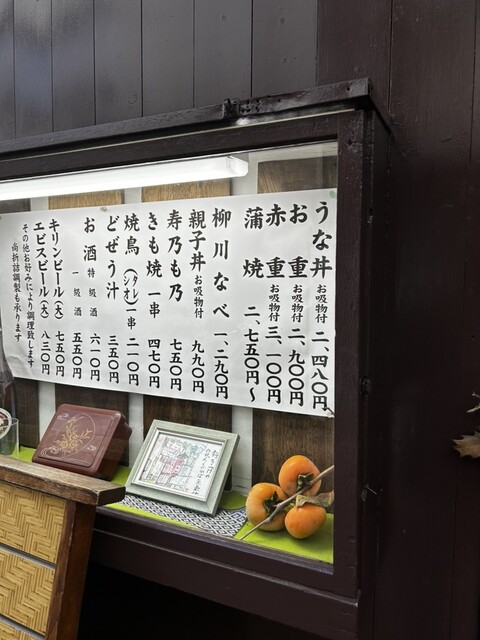 うな丼 お吸物付 二、四八〇円
お重 お吸物付 二、九〇〇円
赤重 お吸物付 三、一〇〇円
蒲焼 二、七五〇円〜
柳川なべ 一、二九〇円
親子丼 お吸物付 九九〇円
寿乃も乃 七五〇円
きも焼 一串 四七〇円
焼鳥(タレ・シオ)一串 二一〇円
どぜう汁 三五〇円
お酒 特級酒 六一〇円
一級酒 五五〇円
キリンビール(大) 七五〇円
エビスビール(大) 八三〇円
その他お好みにより調理致します
尚折詰調製も承ります